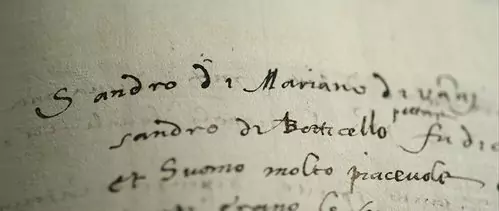 Sandro di Mariano di vanni
sandro di Botticello pittore fu di
et Suomo molto piacevole